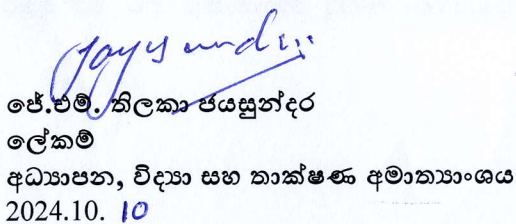 ජේ.එම්. තිලකා ජයසුන්දර
ලේකම්
අධ්‍යාපන, විද්‍යා සහ තාක්ෂණ අමාත්‍යාංශය
2024.10. 10